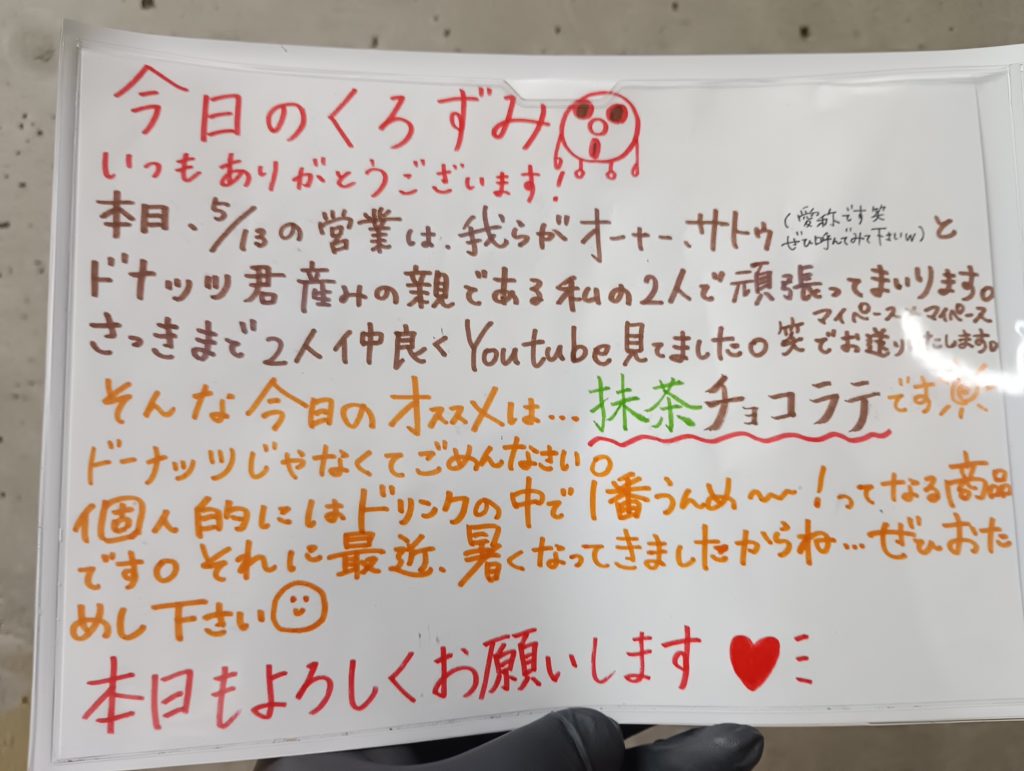 今日のくろずみ
いつもありがとうございます!
本日、5/13の営業は、我らがオーナー、サトゥ(愛称です笑 ぜひ呼んでみて下さいw)と
ドナッツ君産みの親である私の2人で頑張ってまいります。
さっきまで2人仲良くYoutube見てました。笑 マイペース×マイペースでお送りいたします。
そんな今日のオススメは…抹茶チョコラテです
ドーナッツじゃなくてごめんなさい。
個人的にはドリンクの中で1番うんめ〜〜!ってなる商品
です。それに最近、暑くなってきましたからね…ぜひおた
めし下さい
本日もよろしくお願いします